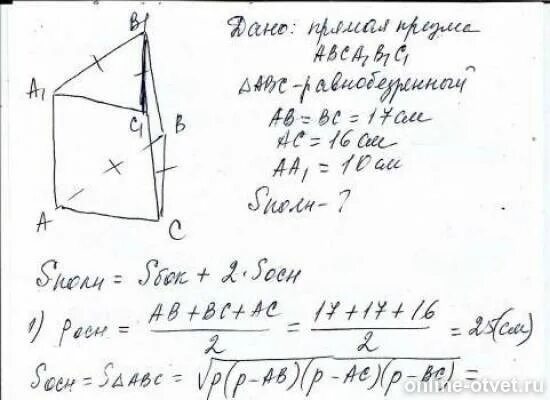 Дано: прямая призма
ABCA₁B₁C₁
△ABC - равнобедренный
AB = BC = 17 см
AC = 16 см
AA₁ = 10 см
Sполн - ?
B₁
A₁
C₁
B
A
C
Sполн = Sбок + 2 · Sосн
1) Pосн = (AB + BC + AC)/2 = (17 + 17 + 16)/2 = 25 (см)
Sосн = S△ABC = √(p(p-AB)(p-AC)(p-BC)) =
online-otvet.ru